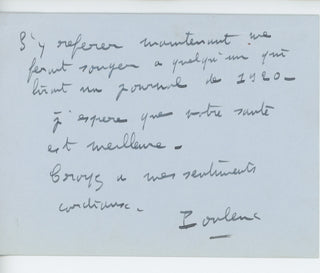 S'y referer maintenant me
ferait songer a quelqu'un qui
lirait un journal de 1920 -
j'espere que votre santé
est meilleure -
Croyez a mes sentiments
cordiaux.
Poulenc